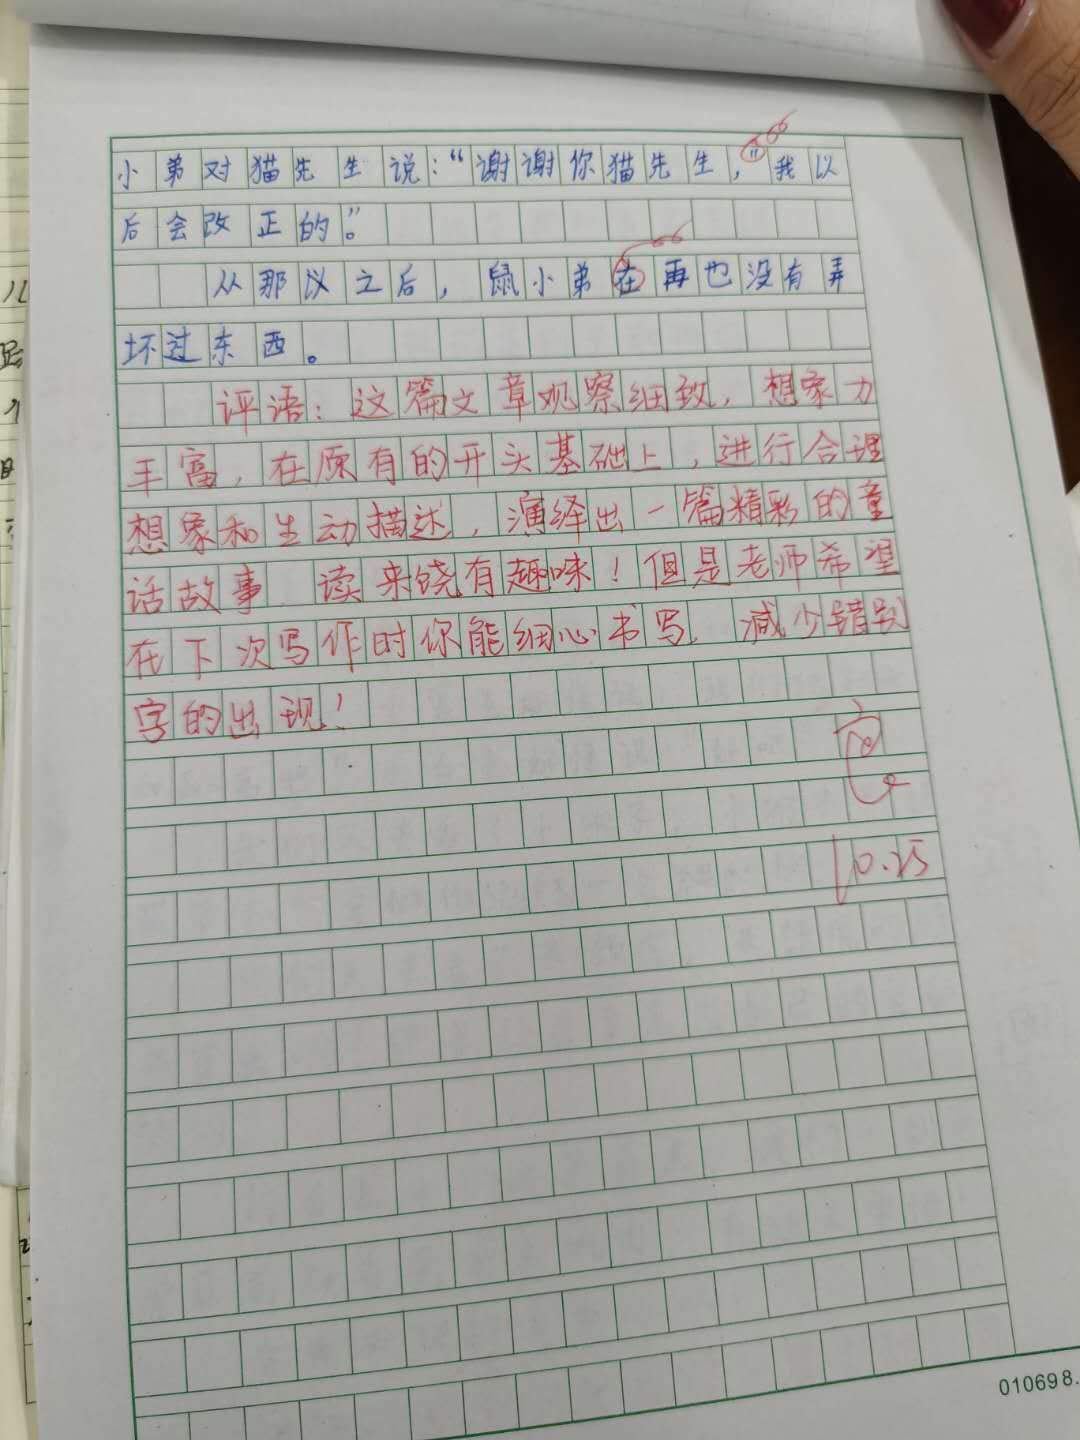 小弟对猫先生说：“谢谢你猫先生，”我以
后会改正的。”
从那以之后，鼠小弟在再也没有弄
坏过东西。
评语：这篇文章观察细致，想象力
丰富，在原有的开头基础上，进行合理
想象和生动描述，演绎出一篇精彩的童
话故事，读来饶有趣味！但是老师希望
在下次写作时你能细心书写，减少错别
字的出现！
10.25
010698.